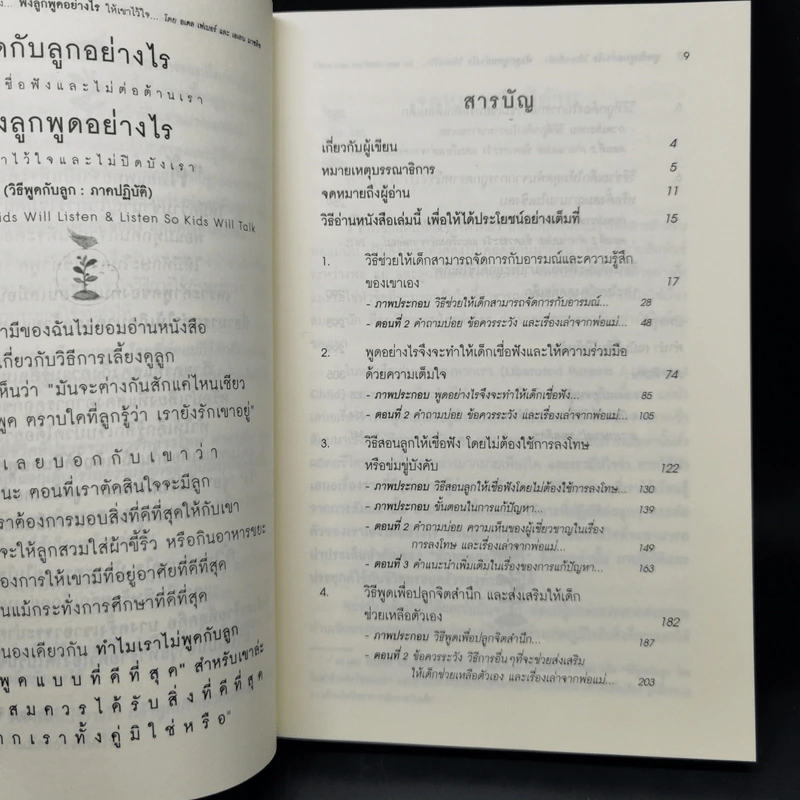 ฟังลูกพูดอย่างไร ให้เขาไว้ใจ... โดย อเดล เฟเบอร์ และ เอเลน มาซลิช
กับลูกอย่างไร
ชื่อฟังและไม่ต่อต้านเรา
งลูกพูดอย่างไร
าไว้ใจและไม่ปิดบังเรา
(วิธีพูดกับลูก : ภาคปฏิบัติ)
ids Will Listen & Listen So Kids Will Talk
ามีของฉันไม่ยอมอ่านหนังสือ
เกี่ยวกับวิธีการเลี้ยงดูลูก
ห็นว่า "มันจะต่างกันสักแค่ไหนเชียว
พูด ตราบใดที่ลูกรู้ว่า เรายังรักเขาอยู่"
เลยบอกกับเขาว่า
นะ ตอนที่เราตัดสินใจจะมีลูก
ราต้องการมอบสิ่งที่ดีที่สุดให้กับเขา
จะให้ลูกสวมใส่ผ้าขี้ริ้ว หรือกินอาหารขยะ
องการให้เขามีที่อยู่อาศัยที่ดีที่สุด
นแม้กระทั่งการศึกษาที่ดีที่สุด
นองเดียวกัน ทำไมเราไม่พูดกับลูก
พูดแบบที่ดีที่สุด" สำหรับเขาล่ะ
สมควรได้รับสิ่งที่ดีที่สุด
ากเราทั้งคู่มิใช่หรือ"
9
สารบัญ
เกี่ยวกับผู้เขียน 4
หมายเหตุบรรณาธิการ 5
จดหมายถึงผู้อ่าน 11
วิธีอ่านหนังสือเล่มนี้ เพื่อให้ได้ประโยชน์อย่างเต็มที่ 15
1. วิธีช่วยให้เด็กสามารถจัดการกับอารมณ์และความรู้สึก
ของเขาเอง 17
- ภาพประกอบ วิธีช่วยให้เด็กสามารถจัดการกับอารมณ์... 28
- ตอนที่ 2 คำถามบ่อย ข้อควรระวัง และเรื่องเล่าจากพ่อแม่... 48
2. พูดอย่างไรจึงจะทำให้เด็กเชื่อฟังและให้ความร่วมมือ
ด้วยความเต็มใจ 74
- ภาพประกอบ พูดอย่างไรจึงจะทำให้เด็กเชื่อฟัง... 85
- ตอนที่ 2 คำถามบ่อย ข้อควรระวัง และเรื่องเล่าจากพ่อแม่... 105
3. วิธีสอนลูกให้เชื่อฟัง โดยไม่ต้องใช้การลงโทษ
หรือข่มขู่บังคับ 122
- ภาพประกอบ วิธีสอนลูกให้เชื่อฟังโดยไม่ต้องใช้การลงโทษ... 130
- ภาพประกอบ ขั้นตอนในการแก้ปัญหา... 139
- ตอนที่ 2 คำถามบ่อย ความเห็นของผู้เชี่ยวชาญในเรื่อง
การลงโทษ และเรื่องเล่าจากพ่อแม่... 149
- ตอนที่ 3 คำแนะนำเพิ่มเติมในเรื่องของการแก้ปัญหา... 163
4. วิธีพูดเพื่อปลูกจิตสำนึก และส่งเสริมให้เด็ก
ช่วยเหลือตัวเอง 182
- ภาพประกอบ วิธีพูดเพื่อปลูกจิตสำนึก... 187
- ตอนที่ 2 ข้อควรระวัง วิธีการอื่นๆที่จะช่วยส่งเสริม
ให้เด็กช่วยเหลือตัวเอง และเรื่องเล่าจากพ่อแม่... 203